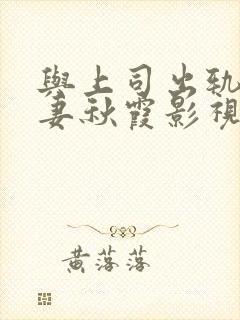 與上司出軌
妻秋霞影視
黃落落